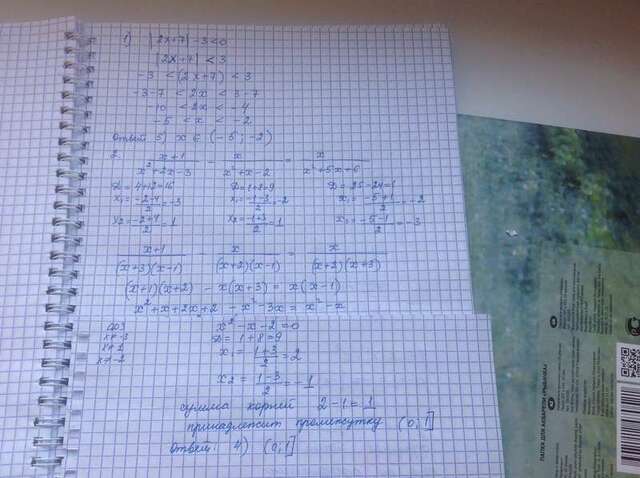 1) |2x+7| -3<0
|2x+7| < 3
-3 < (2x+7) < 3
-3-7 < 2x < 3-7
-10 < 2x < -4
-5 < x < -2
Ответ 5) x ∈ (-5; -2)
2. x+1/x²+2x-3 - x/x²+x-2 = x/x²+5x+6
D = 4+12=16 D=1+8=9 D=25-24=1
x₁=-2-4/2=-3 x₁=-1-3/2=-2 x₁=-5+1/2=-2
x₂=-2+4/2=1 x₂=-1+3/2=1 x₂=-5-1/2=-3
x+1/(x+3)(x-1) - x/(x+2)(x-1) = x/(x+2)(x+3)
(x+1)(x+2) - x(x+3) = x(x-1)
x²+x+2x+2 - x²-3x = x²-x
ОДЗ
x≠-3
x≠1
x≠-2
x²-x-2=0
D = 1+8=9
x₁ = 1+3/2 = 2
x₂ = 1-3/2 = -1
сумма корней 2-1=1
принадлежит промежутку (0;1]
Ответ: 4) (0;1]
ПАПКА ДЛЯ АКВАРЕЛИ «РЫБАЛКА»